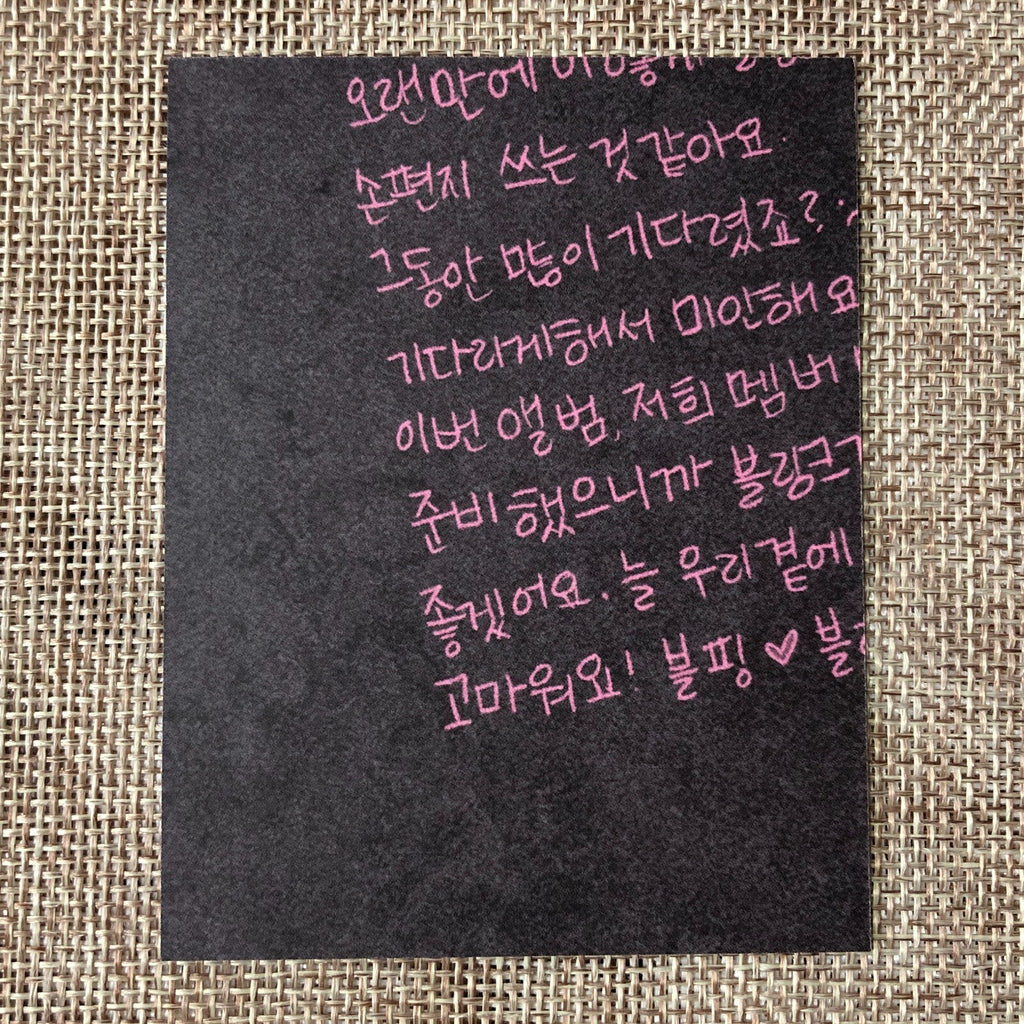 오랜만에
손편지 쓰는 것 같아요.
그동안 많이 기다렸죠?
기다리게해서 미안해요
이번 앨범, 저희 멤버
준비했으니까 블링크
좋겠어요. 늘 우리 곁에
고마워요! 블핑 ♥